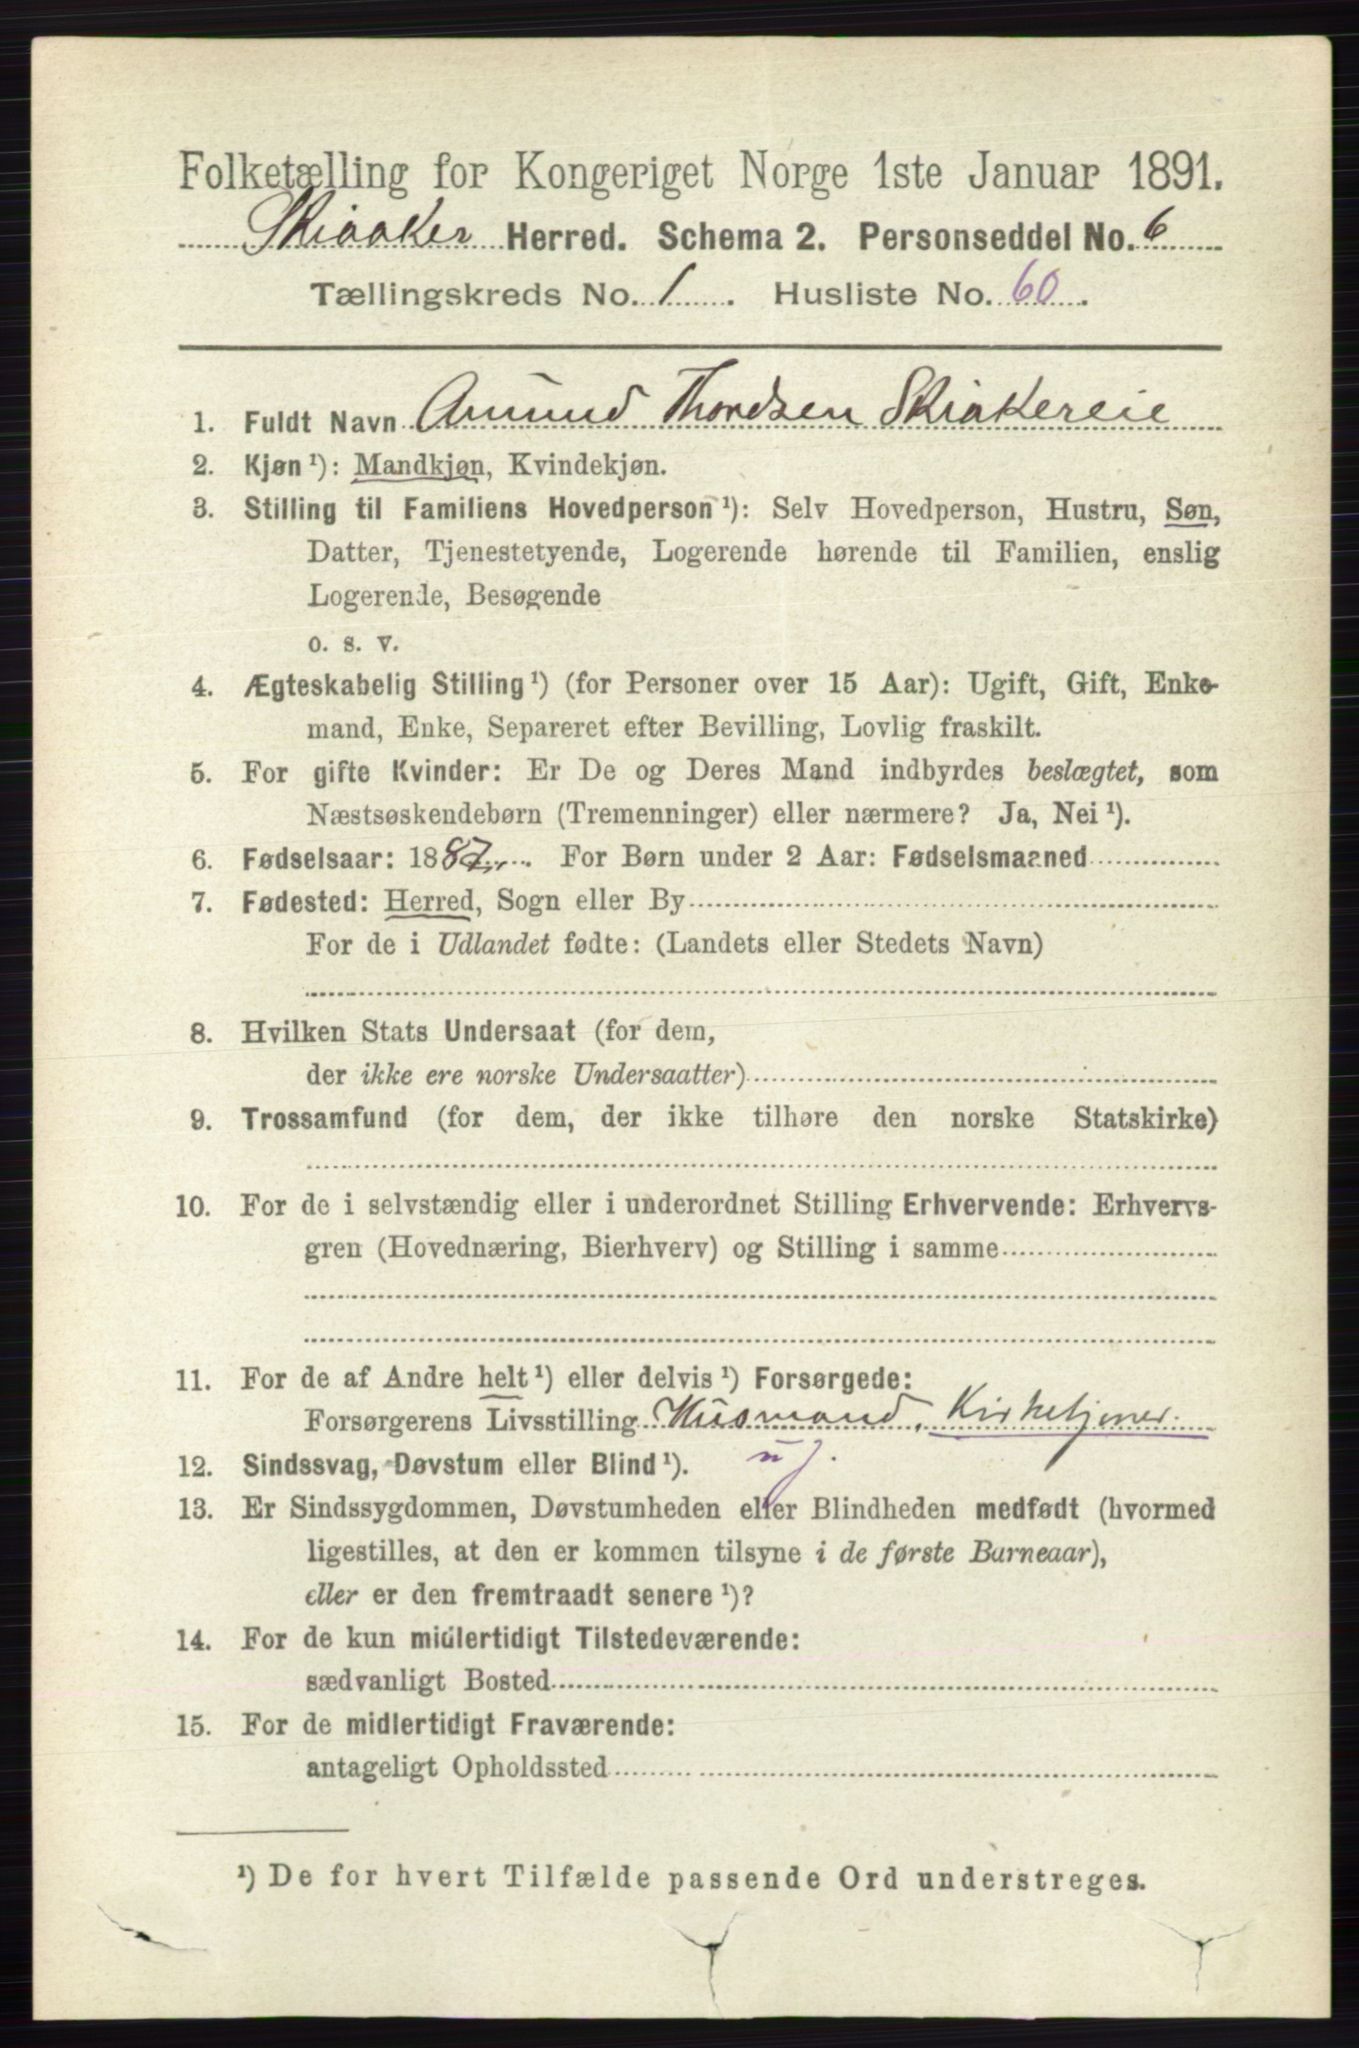 Folketælling for Kongeriget Norge 1ste Januar 1891.
Skiaaker Herred. Schema 2. Personseddel No. 6
Tællingskreds No. 1. Husliste No. 60.
1. Fuldt Navn Amund Thordsen Skiakereie
2. Kjøn ¹): Mandkjøn, Kvindekjøn.
3. Stilling til Familiens Hovedperson ¹): Selv Hovedperson, Hustru, Søn,
Datter, Tjenestetyende, Logerende hørende til Familien, enslig
Logerende, Besøgende
o. s. v.
4. Ægteskabelig Stilling ¹) (for Personer over 15 Aar): Ugift, Gift, Enke-
mand, Enke, Separeret efter Bevilling, Lovlig fraskilt.
5. For gifte Kvinder: Er De og Deres Mand indbyrdes beslægtet, som
Næstsøskendebørn (Tremenninger) eller nærmere? Ja, Nei ¹).
6. Fødselsaar: 1887. For Børn under 2 Aar: Fødselsmaaned
7. Fødested: Herred, Sogn eller By
For de i Udlandet fødte: (Landets eller Stedets Navn)
8. Hvilken Stats Undersaat (for dem,
der ikke ere norske Undersaatter)
9. Trossamfund (for dem, der ikke tilhøre den norske Statskirke)
10. For de i selvstændig eller i underordnet Stilling Erhvervende: Erhvervs-
gren (Hovednæring, Bierhverv) og Stilling i samme
11. For de af Andre helt ¹) eller delvis ¹) Forsørgede:
Forsørgerens Livsstilling Husmand, Kirketjener.
12. Sindssvag, Døvstum eller Blind ¹). uj.
13. Er Sindssygdommen, Døvstumheden eller Blindheden medfødt (hvormed
ligestilles, at den er kommen tilsyne i de første Barneaar),
eller er den fremtraadt senere ¹)?
14. For de kun midlertidigt Tilstedeværende:
sædvanligt Bosted
15. For de midlertidigt Fraværende:
antageligt Opholdssted
¹) De for hvert Tilfælde passende Ord understreges.